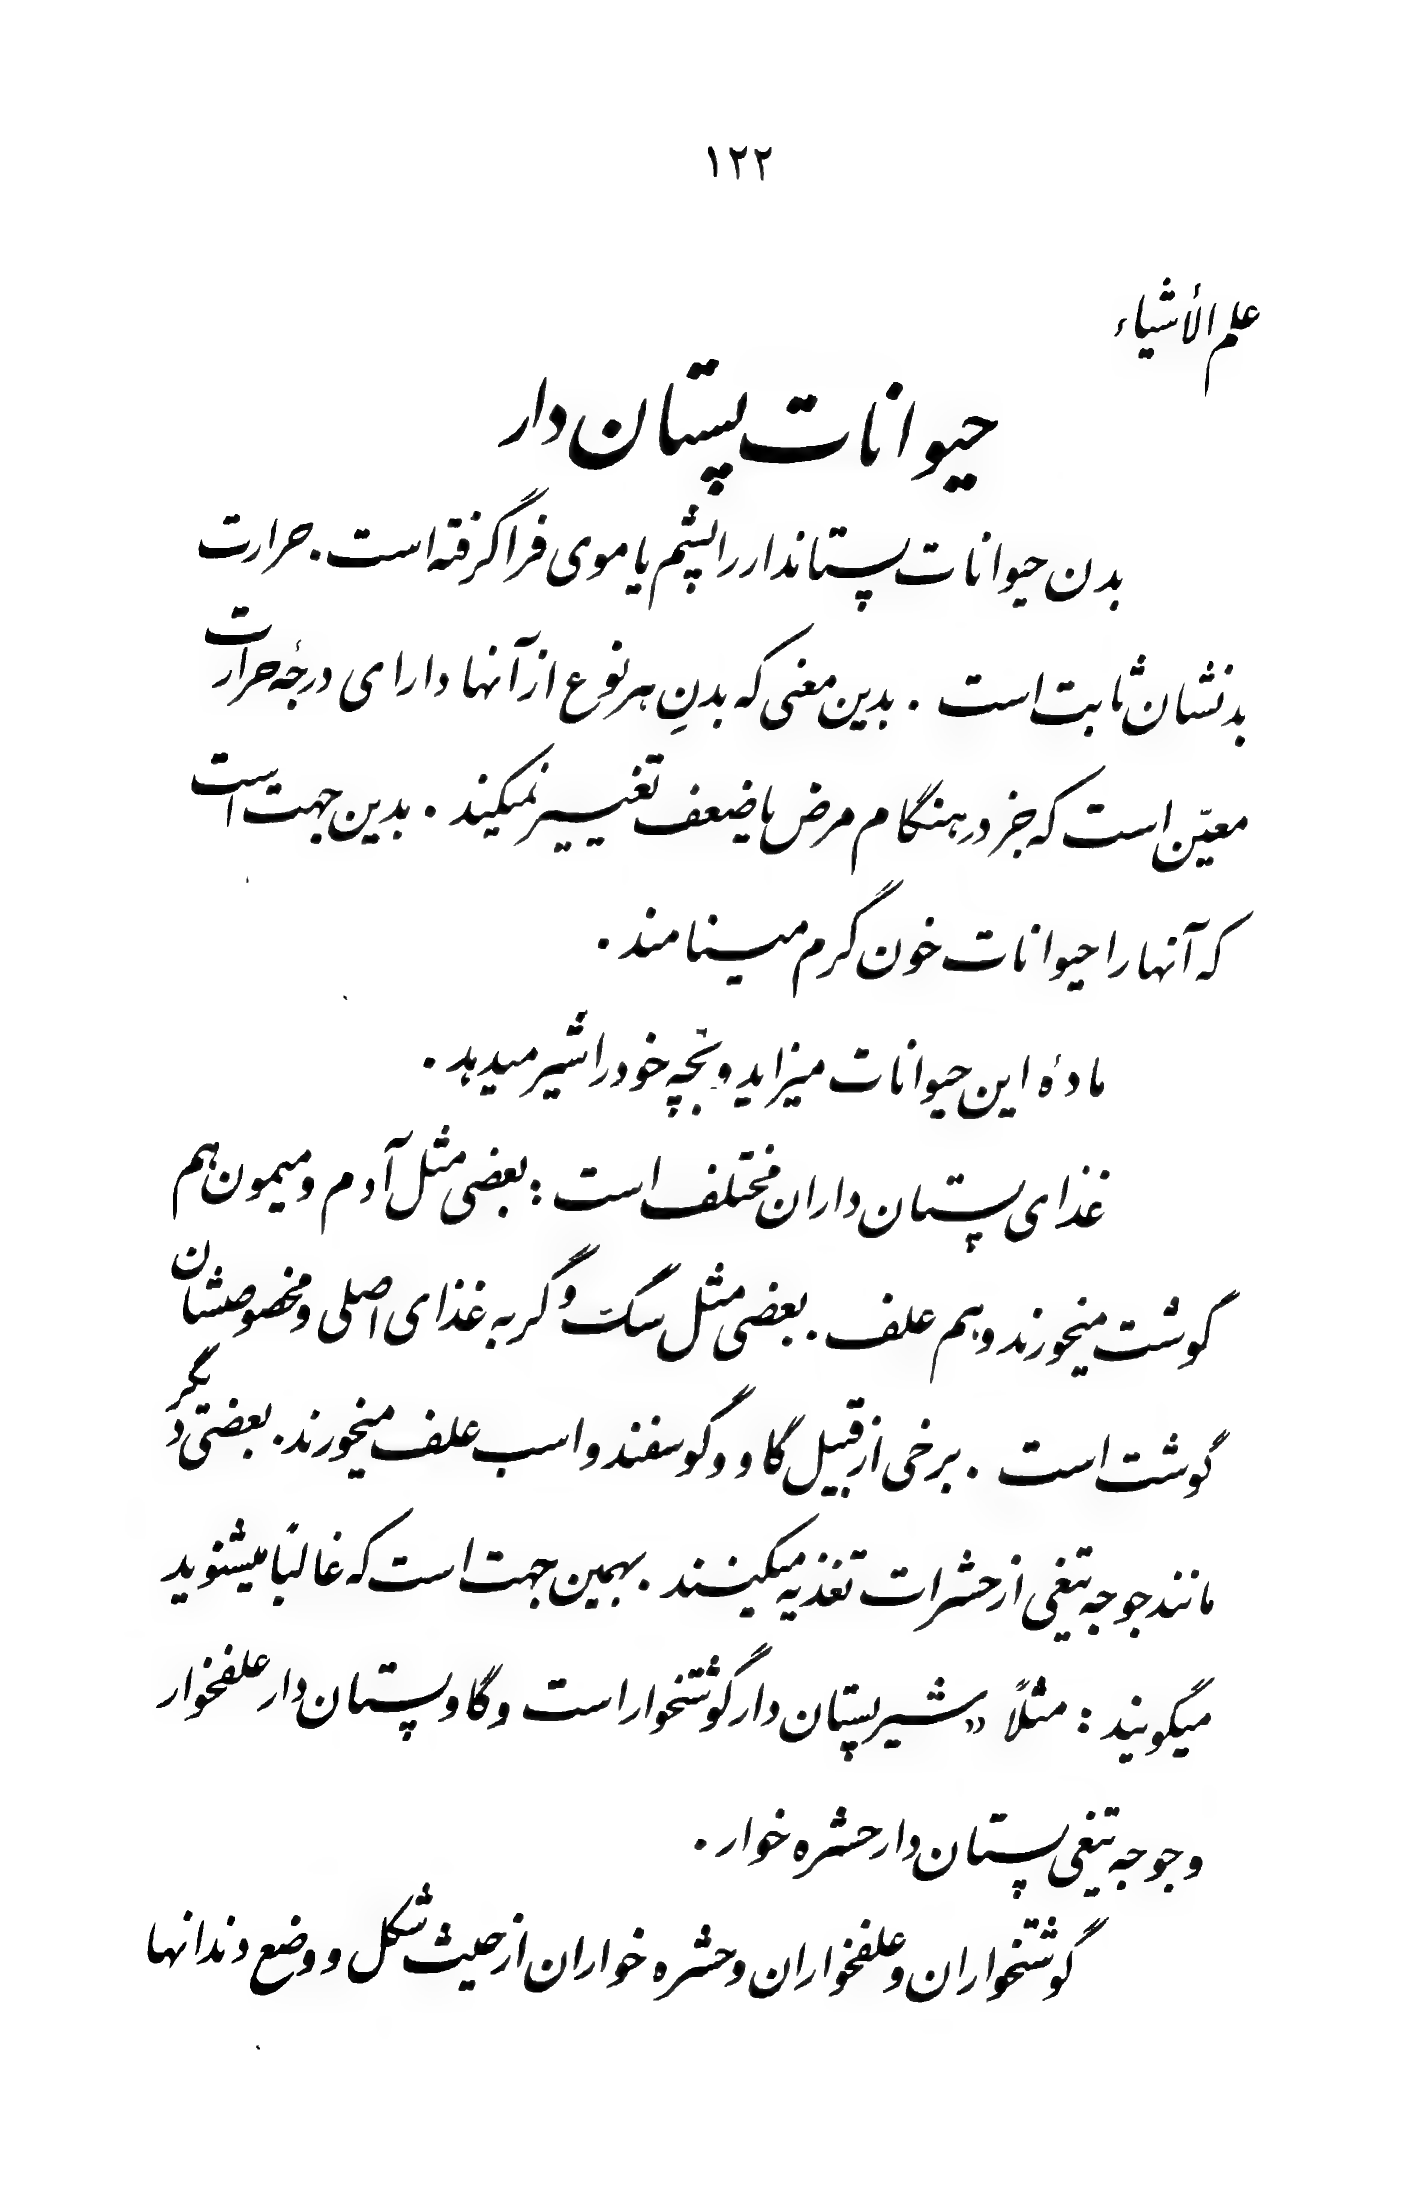 ۱۲۲
علم الأشیاء
حیوانات پستان دار
بدن حیوانات پستاندار را پشم یا موی فراگرفته است. حرارت
بدنشان ثابت است. بدین معنی که بدنِ هر نوع از آنها دارای درجهٔ حرارت
معیّن است که جز در هنگام مرض یا ضعف تغییر نمیکند. بدین جهت است
که آنها را حیوانات خون گرم مینامند.
مادهٔ این حیوانات میزاید و بچه خود را شیر میدهد.
غذای پستان داران مختلف است: بعضی مثل آدم و میمون هم
گوشت میخورند و هم علف. بعضی مثل سگ و گربه غذای اصلی و مخصوصشان
گوشت است. برخی از قبیل گاو و گوسفند و اسب علف میخورند. بعضی دیگر
مانند جوجه تیغی از حشرات تغذیه میکنند. بهمین جهت است که غالبًا میشنوید
میگویند: مثلاً «شیر پستان دار گوشتخوار است و گاو پستان دار علفخوار
و جوجه تیغی پستان دار حشره خوار.
گوشتخواران و علفخواران و حشره خواران از حیث شکل و وضع دندانها